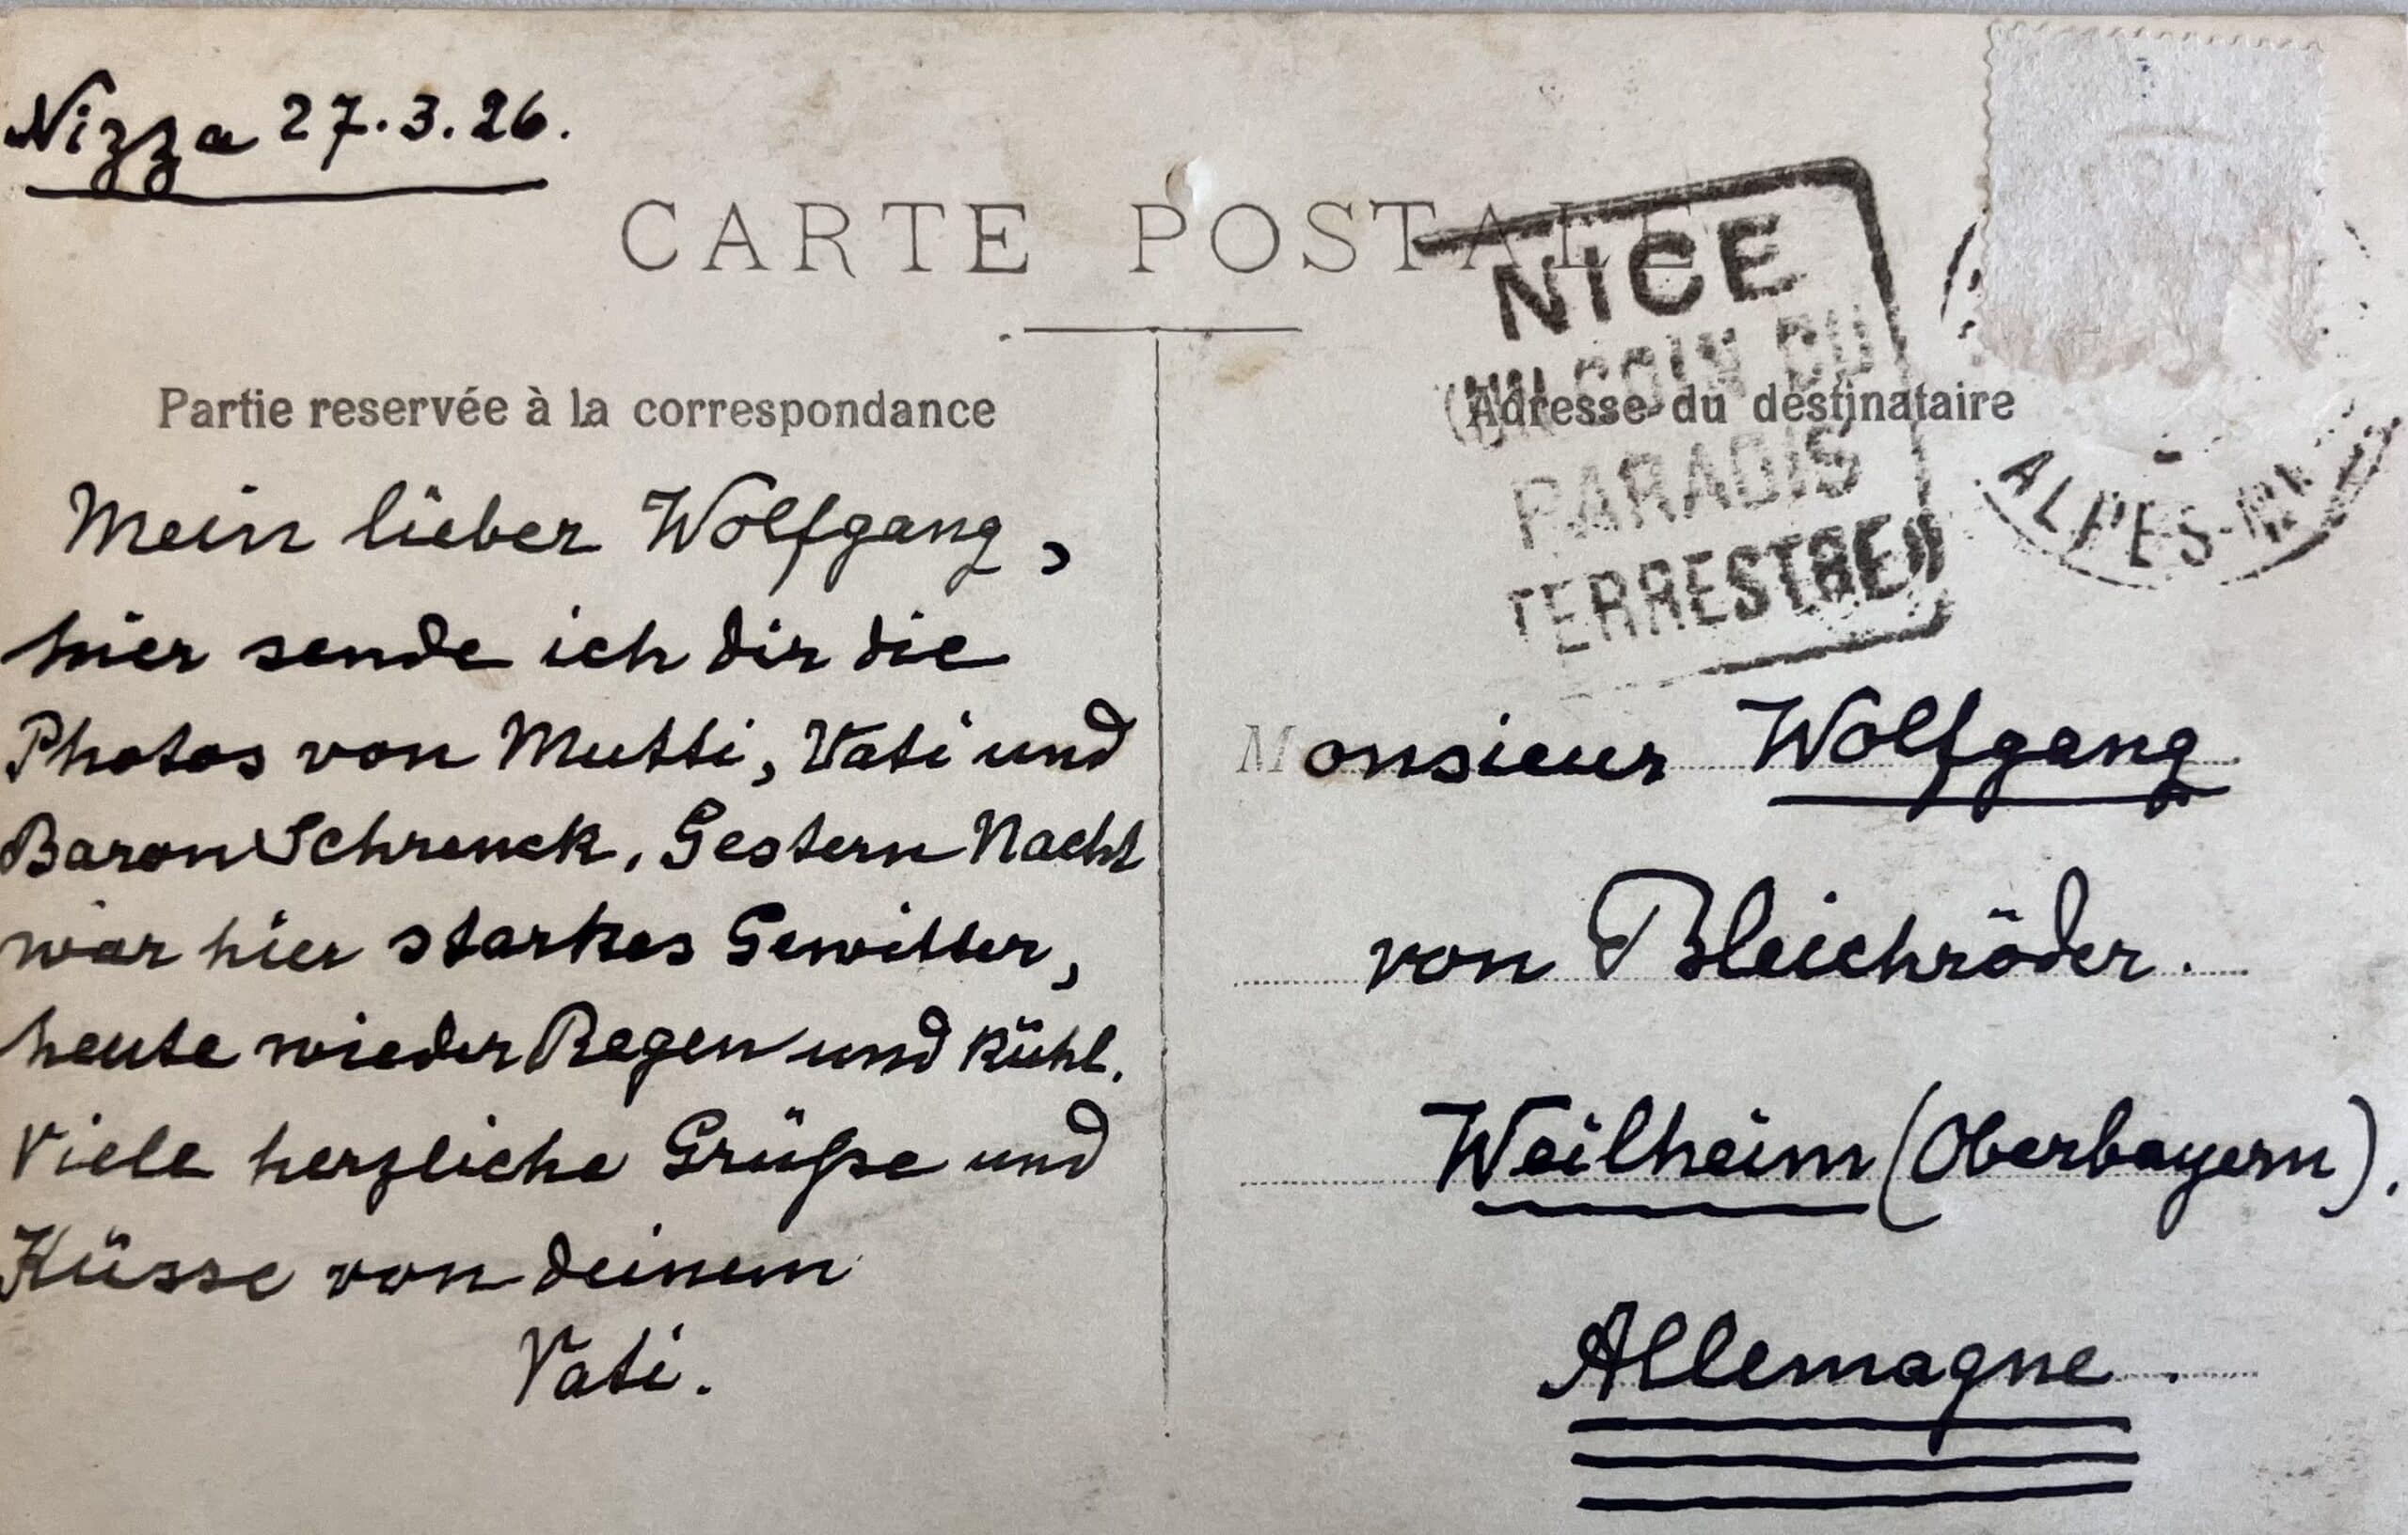 Nizza 27.3.26.
CARTE POSTALE
Partie reservée à la correspondance
Mein lieber Wolfgang,
hier sende ich dir die
Photos von Mutti, Vati und
Baron Schrenck. Gestern Nacht
war hier starkes Gewitter,
heute wieder Regen und kühl.
Viele herzliche Grüße und
Küsse von deinem
Vati.
NICE
UN COIN DU
PARADIS
TERRESTRE
ALPES-
Adresse du destinataire
Monsieur Wolfgang
von Bleichröder.
Weilheim (Oberbayern).
Allemagne.